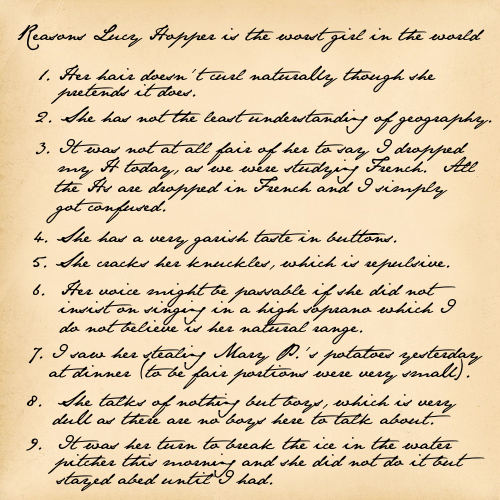 Reasons Lucy Hopper is the worst girl in the world
1. Her hair doesn't curl naturally though she
pretends it does.
2. She has not the least understanding of geography.
3. It was not at all fair of her to say I dropped
my H today, as we were studying French. All
the Hs are dropped in French and I simply
got confused.
4. She has a very garish taste in buttons.
5. She cracks her knuckles, which is repulsive.
6. Her voice might be passable if she did not
insist on singing in a high soprano which I
do not believe is her natural range.
7. I saw her stealing Mary P.'s potatoes yesterday
at dinner (to be fair portions were very small).
8. She talks of nothing but boys, which is very
dull as there are no boys here to talk about.
9. It was her turn to break the ice in the water
pitcher this morning and she did not do it but
stayed abed until I had.